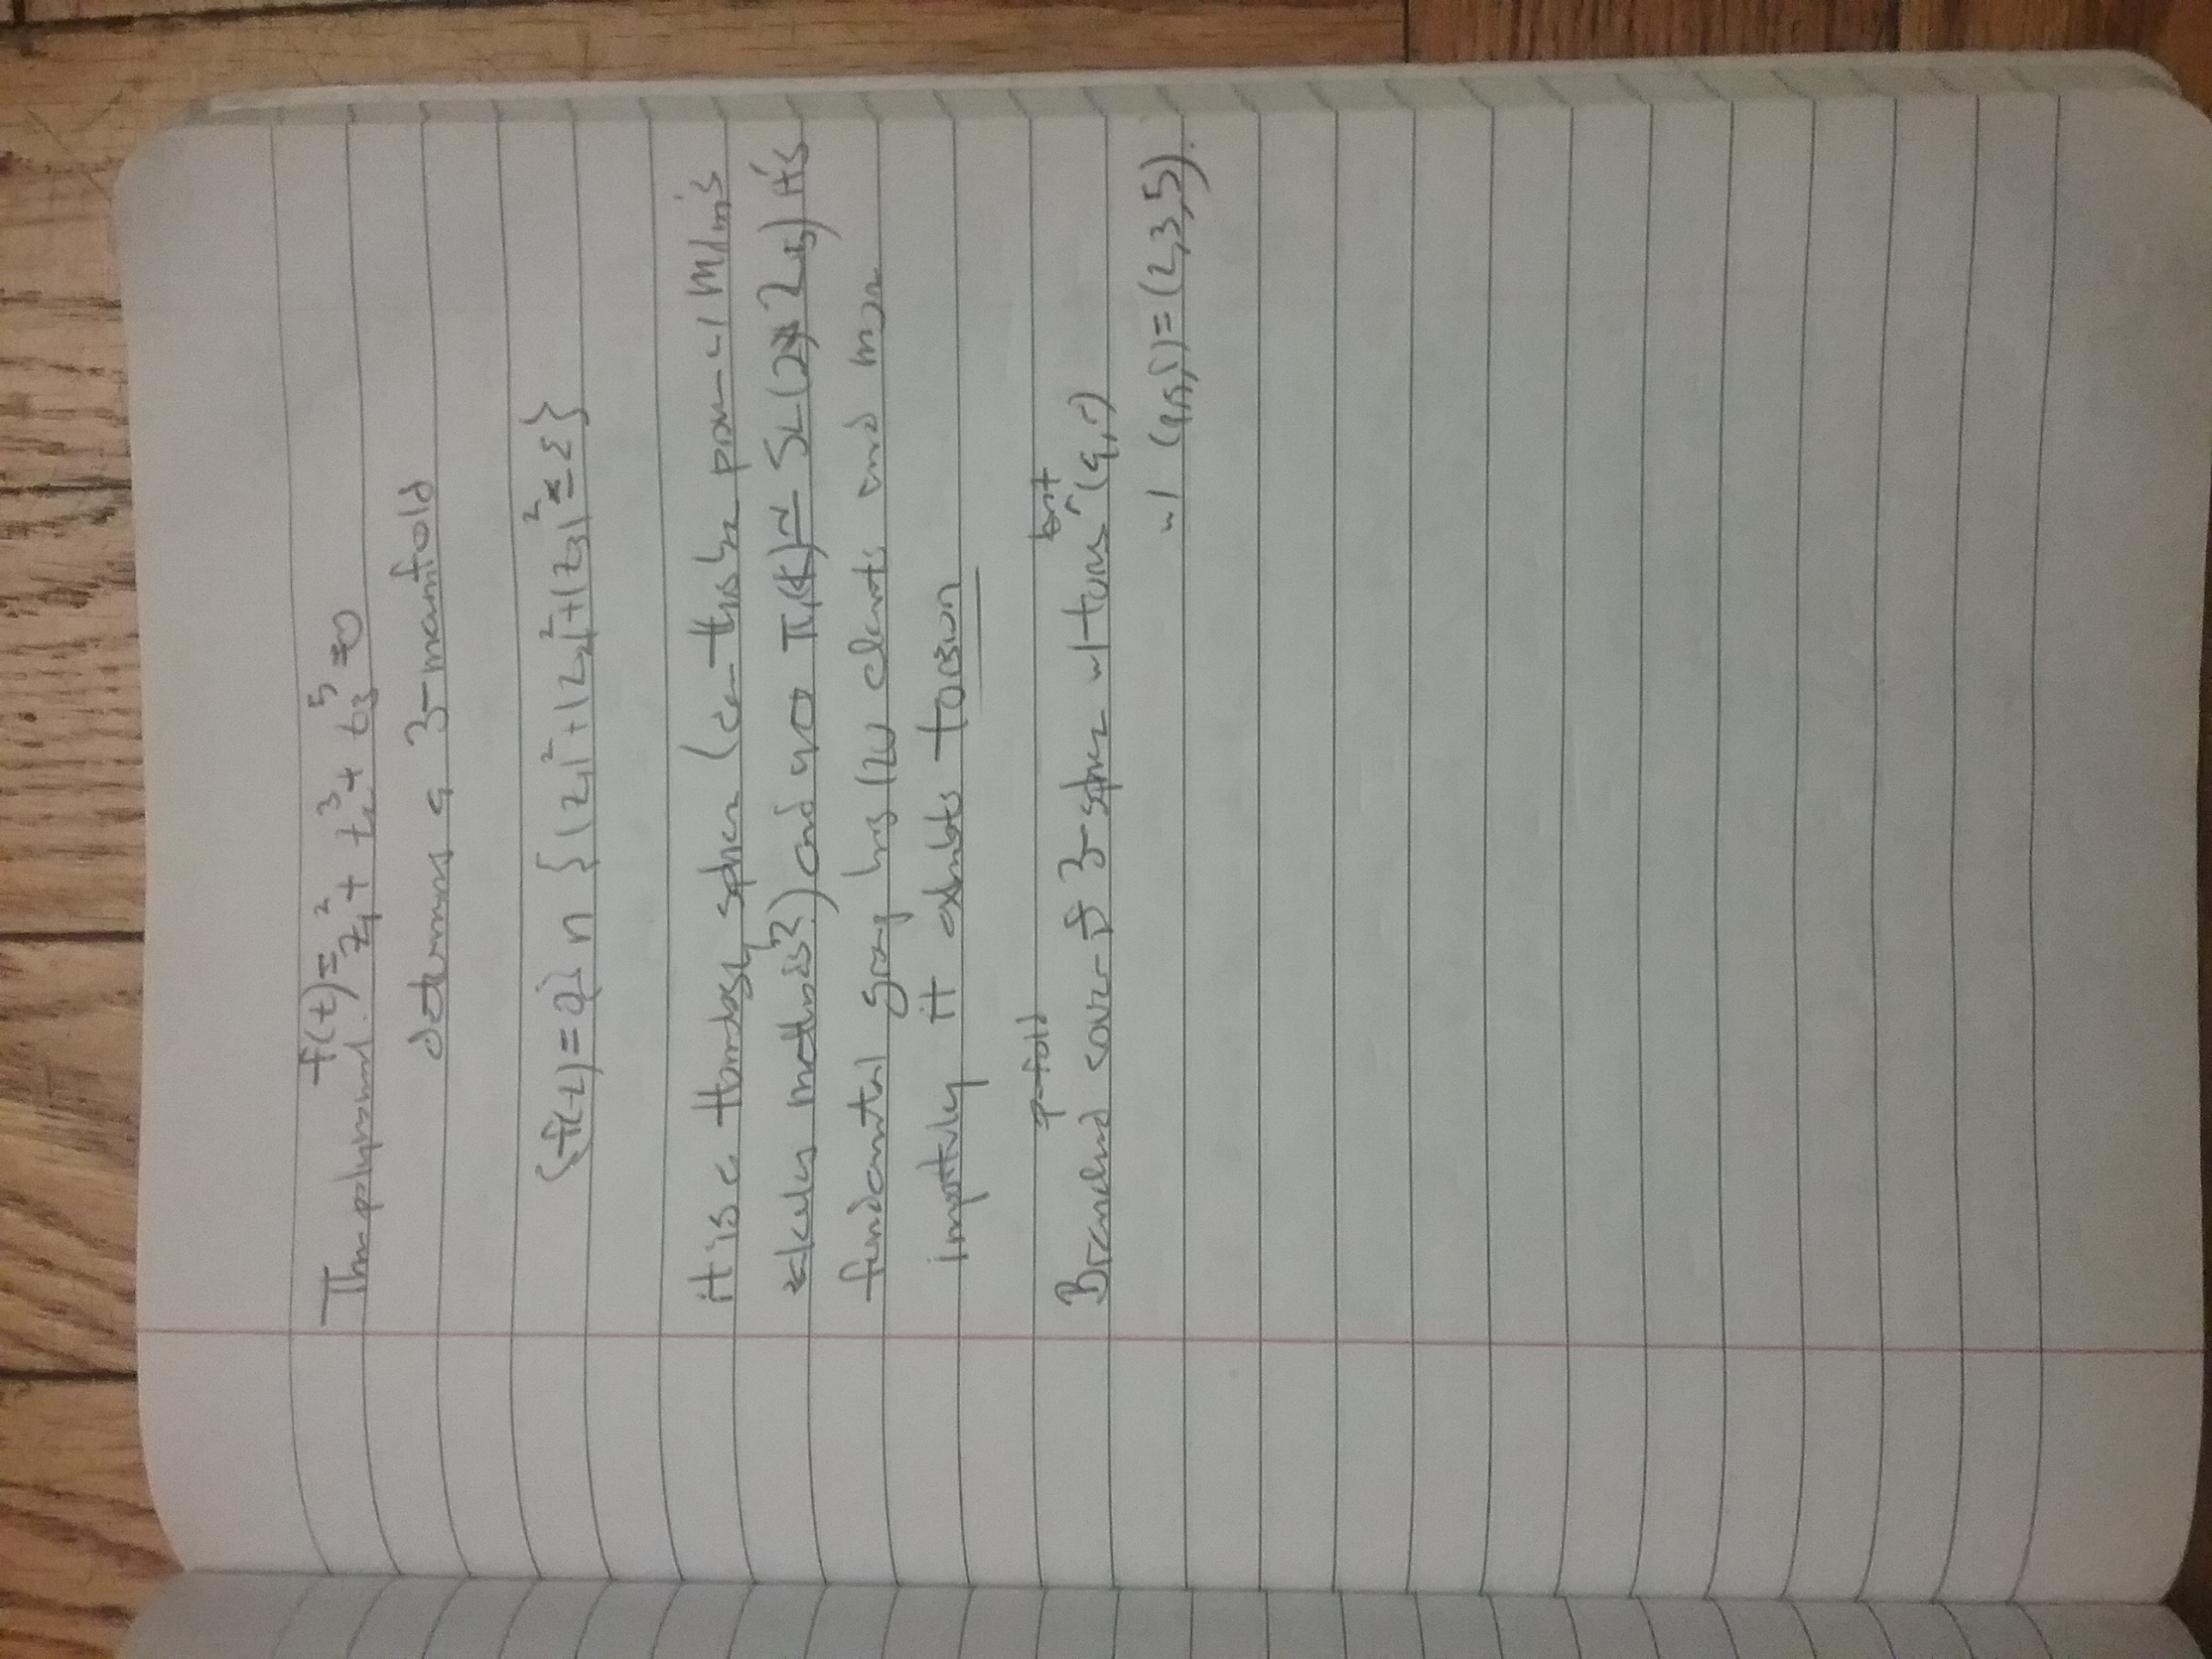 f(z) =
The polynomial. z₁² + z₂³ + z₃⁵ = 0
determines a 3-manifold
{f(z) = 0} ∩ {|z₁|² + |z₂|² + |z₃|² = ε}
it is a Homology sphere (can this be proven w/ Milnor's
calculus methods?) and yet π₁(K) ≃ SL(2, Z₅) it's
fundamental group has 120 elements and more
importantly it exhibits torsion
p-fold knot
Branched cover of 3-sphere w/ torus ^ (q,r)
w/ (p,q,r) = (2,3,5).